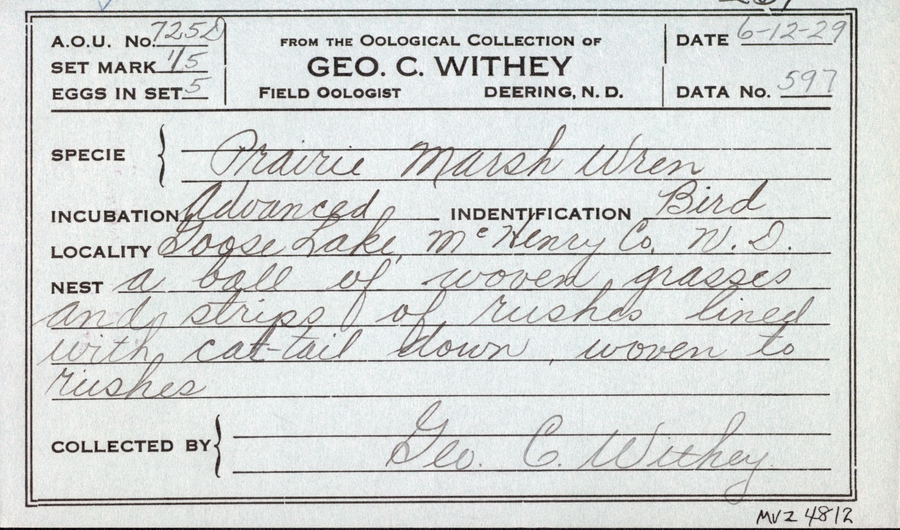 A.O.U. No. 725D
SET MARK 1/5
EGGS IN SET 5
FROM THE OOLOGICAL COLLECTION OF
GEO. C. WITHEY
FIELD OOLOGIST DEERING, N. D.
DATE 6-12-29
DATA NO. 597
SPECIE Prairie Marsh Wren
INCUBATION Advanced INDENTIFICATION Bird
LOCALITY Goose Lake, McHenry Co, N. D.
NEST a ball of woven grasses
and strips of rushes lined
with cat-tail down, woven to
rushes
COLLECTED BY Geo. C. Withey
MVZ 4812